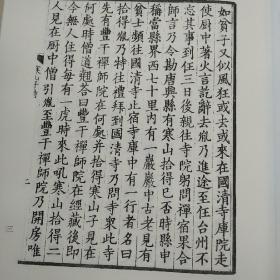 如貧子又似風狂或去或來在國清寺庫院走
使厨中著火言訖辭去胤乃進途至任台州不
忘其事到任三日後親往寺院躬問禪宿果合
師言乃令勘唐興縣有寒山拾得已否時縣申
稱當縣界西七十里内有一巖巖中古老見有
貧士頻往國清寺止宿寺庫中有一行者名曰
拾得胤乃特往禮拜到國清寺乃問寺衆此寺
先有豐干禪師院在何處并拾得寒山子見在
何處時僧道翹答曰豐干禪師院在經藏後即
今無人住得每有一虎時來此吼寒山拾得二
寒山子詩
二
人見在厨中僧引胤至豐干禪師院乃開房唯
三